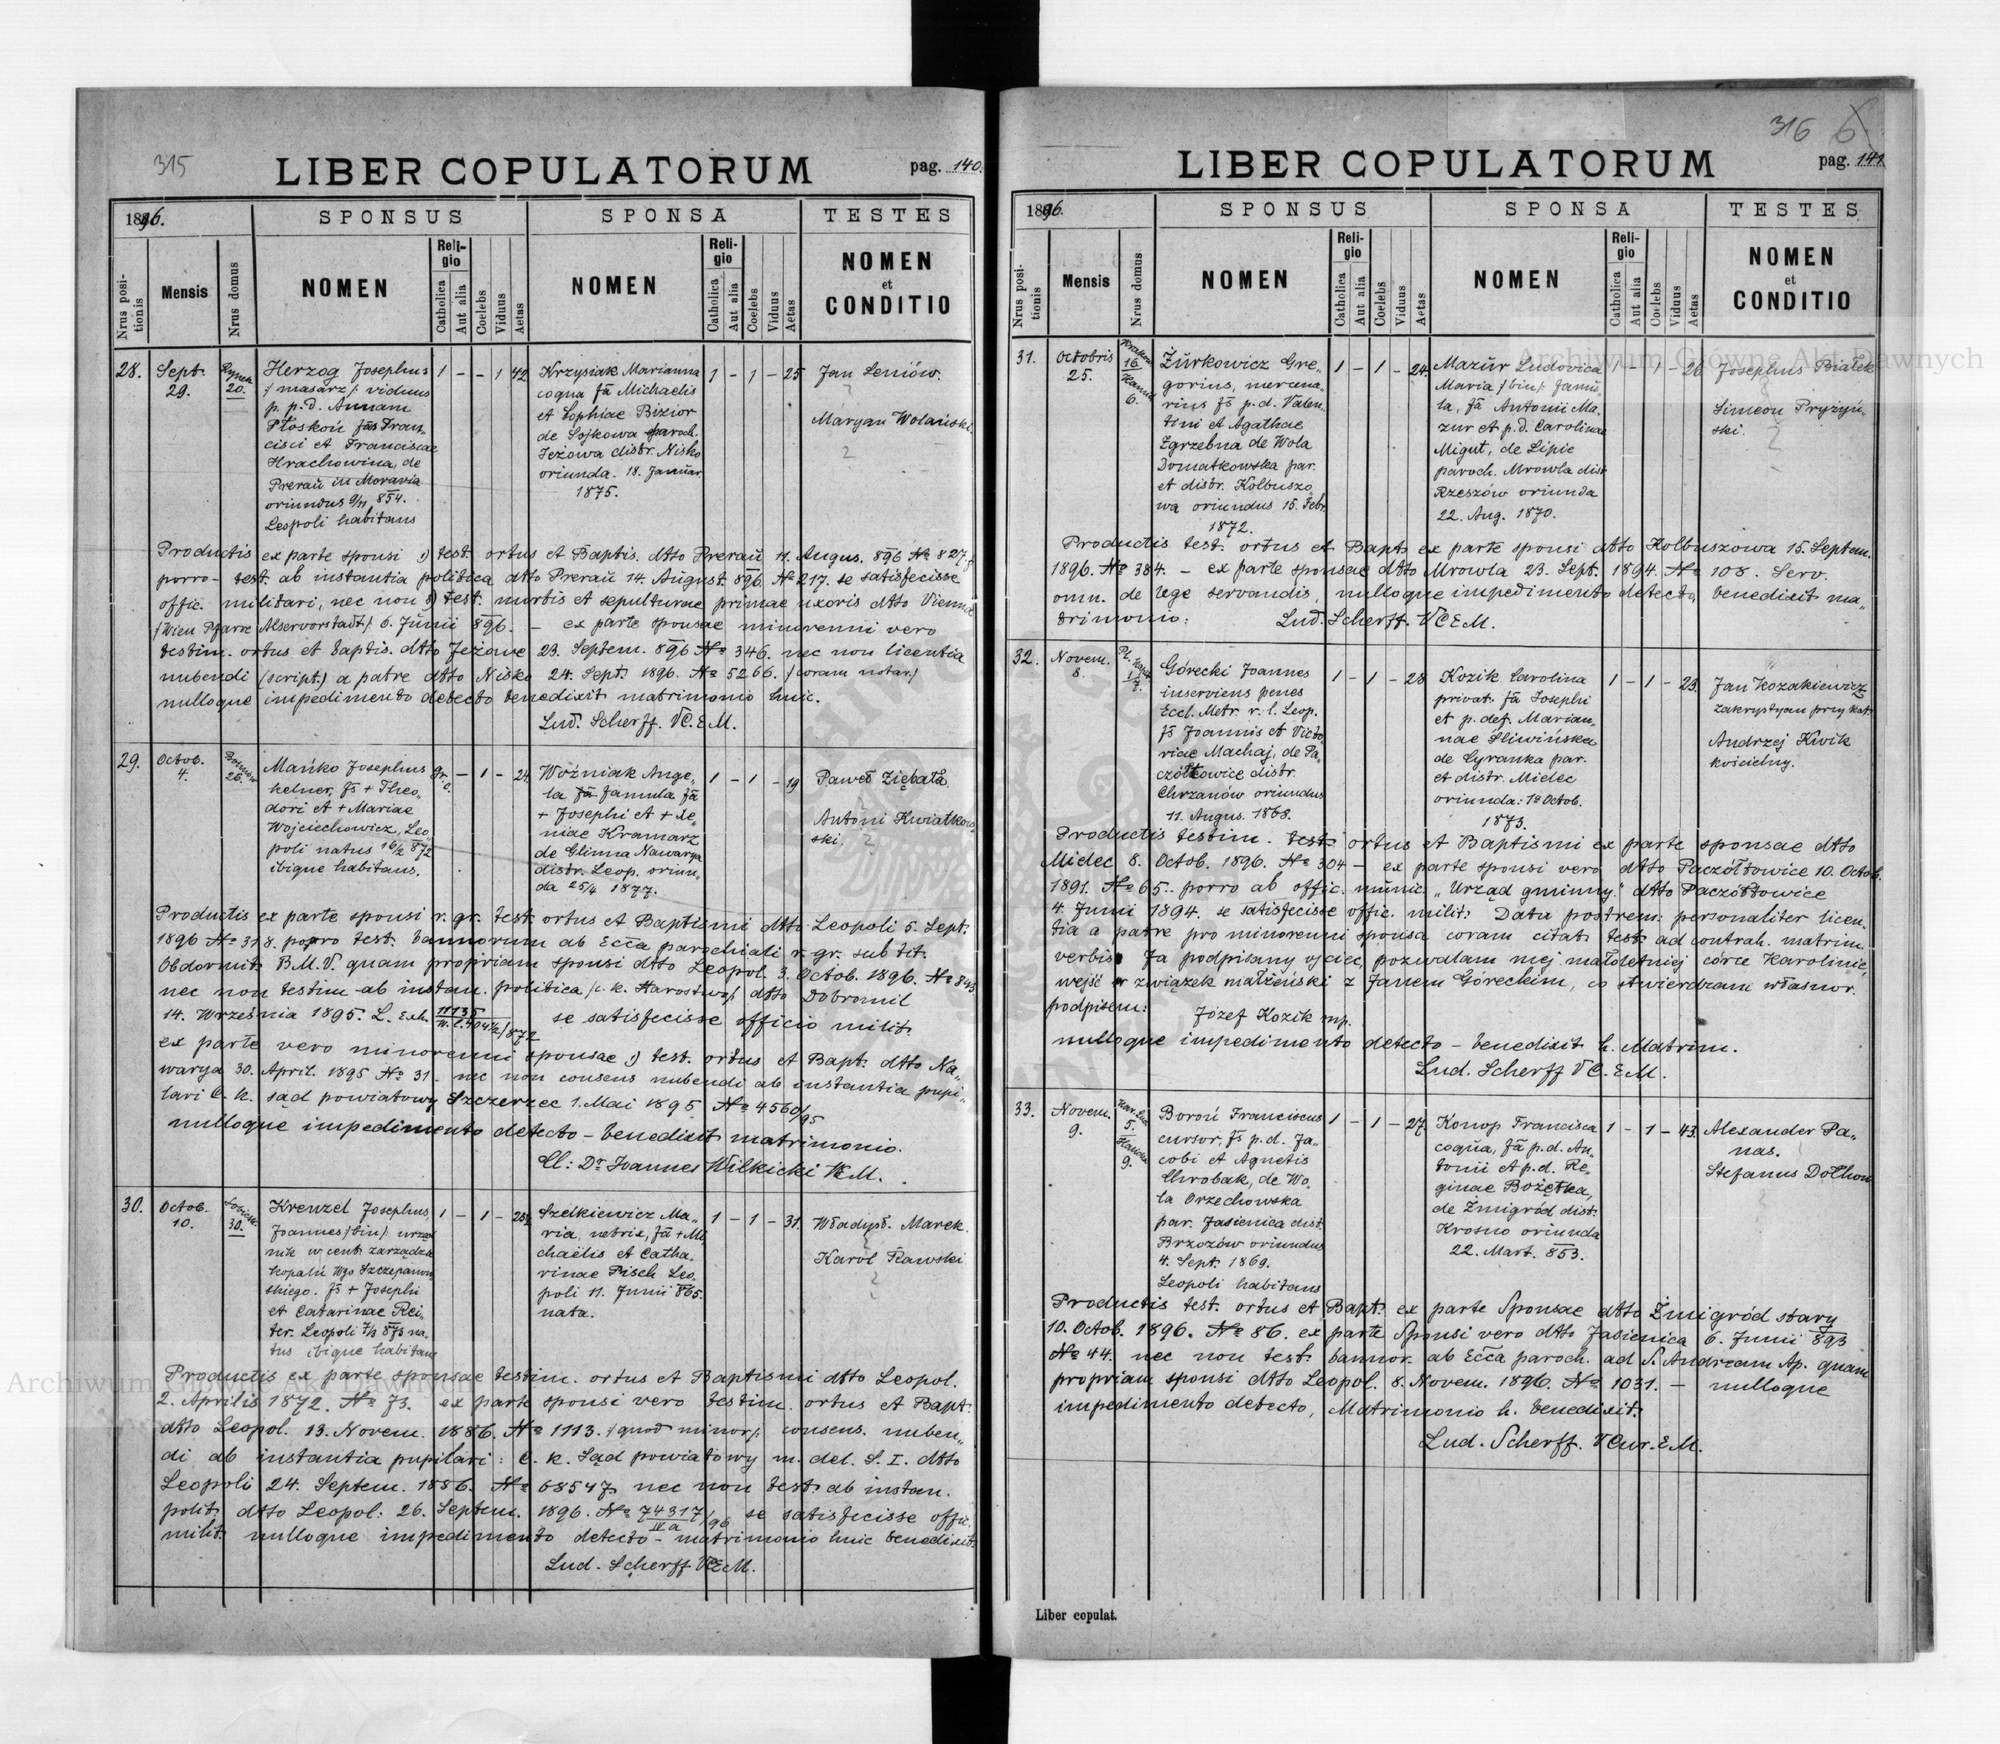 315
LIBER COPULATORUM
pag. 140.
1896.
SPONSUS
SPONSA
TESTES
Nrus positionis
Mensis
Nrus domus
NOMEN
Religio
Catholica
Aut alia
Coelebs
Viduus
Aetas
NOMEN
Religio
Catholica
Aut alia
Coelebs
Viduus
Aetas
NOMEN
et
CONDITIO
28.
Sept.
29.
Rynek
20.
Herzog Josephus
/: masarz /: viduus
p. p. d. Annam
Ptoskoń făs Fran-
cisci et Franciscae
Hrachowina, de
Preraŭ in Moravia
oriundus 9/11 854.
Leopoli habitans
1 - - 1 42
Krzysiak Marianna
coqua fā Michaelis
et Sophiae Bizior
de Sojkowa paroch.
Jeżowa distr. Nisko
oriunda. 18. Januar.
1875.
1 - 1 - 25
Jan Leniów.
Maryan Wolański.
Productis ex parte sponsi 1) test. ortus et Baptis. dtto Preraŭ 11. Augus. 896 No 827
porro - test. ab instantia politica dtto Preraŭ 14. August. 896. No 217. se satisfecisse
offic. militari, nec non test. mortis et sepulturae primae uxoris dtto Viennae
/Wien Pfarre Alservorstadt/: 6. Junii 896. - ex parte sponsae minorenni vero
testim. ortus et baptis. dtto Jeżowe 23. Septem. 896 No 346. nec non licentia
nubendi (script.) a patre dtto Nisko 24. Sept. 1896. No 5266. /coram notar./
nulloque impedimento detecto benedixit matrimonio huic.
Lud. Scherff. VC.EM.
29.
Octob.
4.
26.
Mańko Josephus
kelner, fs + Theo-
dori et + Mariae
Wojciechowicz, Leo-
poli natus 16/2 872
ibique habitans.
gr. c. - 1 - 24
Woźniak Ange-
la famula fā
+ Josephi et + Xe-
niae Kramarz
de Glinna Nawarya
distr. Leop. oriun-
da 25/4 1877.
1 - 1 - 19
Paweł Ziębała
Antoni Kwiatkow-
ski.
Productis ex parte sponsi r. gr. test. ortus et Baptismi dtto Leopoli 5. Sept.
1896 No 318. porro test. bannorum ab Ecca parochiali r. gr. sub tit.
Obdormit. B.M.V. quam propriam sponsi dtto Leopol. 3. Octob. 1896. No 843
nec non testim ab instan. politica /c. k. Starostwo/ dtto Dobromil
14. Września 1895. L. Exh. 11135 / 872 se satisfecisse officio milit
ex parte vero minorenni sponsae 1) test. ortus et Bapt. dtto Na-
warya 30. April. 1895 No 31. nec non consens nubendi ab instantia pupi-
lari C. k. sąd powiatowy Szczerzec 1. Mai 1895 No 4560/95
nulloque impedimento detecto - benedixit matrimonio.
Cl: Dr Joannes Wilkicki VEM.
30.
Octob.
10.
30.
Krenzel Josephus
Joannes /bin/: urzęd
nik w cent. zarządzie
kopalń Wgo Szczepanow
skiego. fs + Josephi
et Catarinae Rei-
ter. Leopoli 7/3 873 na-
tus ibique habitans
1 - 1 - 23
Szelkiewicz Ma-
ria, netrix, fā + Mi-
chaelis et Catha-
rinae Pisch Leo-
poli 11. Junii 865.
nata.
1 - 1 - 31
Władysł. Marek.
Karol Rawski
Productis ex parte sponsae testim. ortus et Baptismi dtto Leopol.
2. Aprilis 1872. No 73. ex parte sponsi vero testim. ortus et Bapt.
dtto Leopol. 13. Novem. 1886. No 1113. /quod minor/: consens. nuben-
di ab instantia pupilari: C. k. Sąd powiatowy m. del. S. I. dtto
Leopoli 24. Septem. 1886. No 68547 nec non test. ab instan.
polit. dtto Leopol: 26. Septem. 1896. No 74317/96 IVa se satisfecisse offic.
milit. nulloque impedimento detecto - matrimonio huic benedixit.
Lud. Scherff VCEM.
316 6
LIBER COPULATORUM
pag. 141
1896.
SPONSUS
SPONSA
TESTES
Nrus positionis
Mensis
Nrus domus
NOMEN
Religio
Catholica
Aut alia
Coelebs
Viduus
Aetas
NOMEN
Religio
Catholica
Aut alia
Coelebs
Viduus
Aetas
NOMEN
et
CONDITIO
31.
Octobris
25.
16
6.
Żurkowicz Gre-
gorius, mercena-
rius fs p. d. Valen-
tini et Agathae
Zgrzebna de Wola
Domatkowska par.
et distr. Kolbuszo
wa oriundus 15. Febr.
1872.
1 - 1 - 24
Mazŭr Ludovica
Maria /bin/: famŭ-
la, fā Antonii Ma-
zur et p. d. Carolinae
Migut, de Lipie
paroch. Mrowla dist
Rzeszów oriunda
22. Aug. 1870.
1 - 1 - 26
Josephus Białek
Simeon Pryżyń-
ski.
Productis test. ortus et Bapt. ex parte sponsi dtto Kolbuszowa 15. Septem.
1896. No 384. - ex parte sponsae dtto Mrowla 23. Sept. 1894. No 108. Serv.
omn. de lege servandis, nulloque impedimento detecto, benedixit ma-
trimonio: Lud. Scherff. VCEM.
32.
Novem.
8.
7.
Górecki Joannes
inserviens penes
Eccl. Metr. r. l. Leop.
fs Joannis et Victo
riae Machaj, de Pa-
czółtowice distr.
Chrzanów oriundus
11. Augus. 1868.
1 - 1 - 28
Kozik Carolina
privat. fā Josephi
et p. def. Marian-
nae Śliwińska
de Cyranka par.
et distr. Mielec
oriunda: 10 Octob.
1873.
1 - 1 - 23.
Jan Kozakiewicz
zakrystyan przy kat.
Andrzej Kwik
kościelny.
Productis testim. test. ortus et Baptismi ex parte sponsae dtto
Mielec 8. Octob. 1896. No 304 - ex parte sponsi vero dtto Paczółtowice 10. Octob.
1891. No 65. porro ab offic. munic. „Urząd gminny" dtto Paczółtowice
4. Junii 1894. se satisfecisse offic. milit: Data postrem: personaliter licen-
tia a patre pro minorenni sponsa coram citat. test. ad contrah. matrim.
verbis Ja podpisany ojciec, pozwalam mej małoletniej córce Karolinie,
wejść w związek małżeński z Janem Góreckim, co stwierdzam własnor.
podpisem: Józef Kozik mp.
nulloque impedimento detecto - benedixit h. Matrim.
Lud. Scherff VC.EM.
33.
Novem.
9.
5.
9.
Boroń Franciscus
cursor, fs p. d. Ja-
cobi et Agnetis
Chrobak, de Wo-
la Orzechowska
par. Jasienica dist.
Brzozów oriundus
4. Sept. 1869.
Leopoli habitans
1 - 1 - 27
Konop Francisca
coqŭa, fā p. d. An-
tonii et p. d. Re-
ginae Bożętka,
de Żmigród dist.
Krosno oriunda
22. Mart. 853.
1 - 1 - 43.
Alexander Pa-
nas.
Stefanus Dołhon
Productis test. ortus et Bapt. ex parte Sponsae dtto Żmigród stary
10. Octob. 1896. No 86. ex parte Sponsi vero dtto Jasienica 6. Junii 893
No 44. nec non test. bannor. ab Ecca paroch. ad S. Andream Ap. quam
propriam sponsi dtto Leopol. 8. Novem. 1896. No 1031. - nulloque
impedimento detecto, Matrimonio h. benedixit.
Lud. Scherff. VCur.EM.
Liber copulat.
Archiwum Główne Akt Dawnych
Archiwum Główne Akt Dawnych